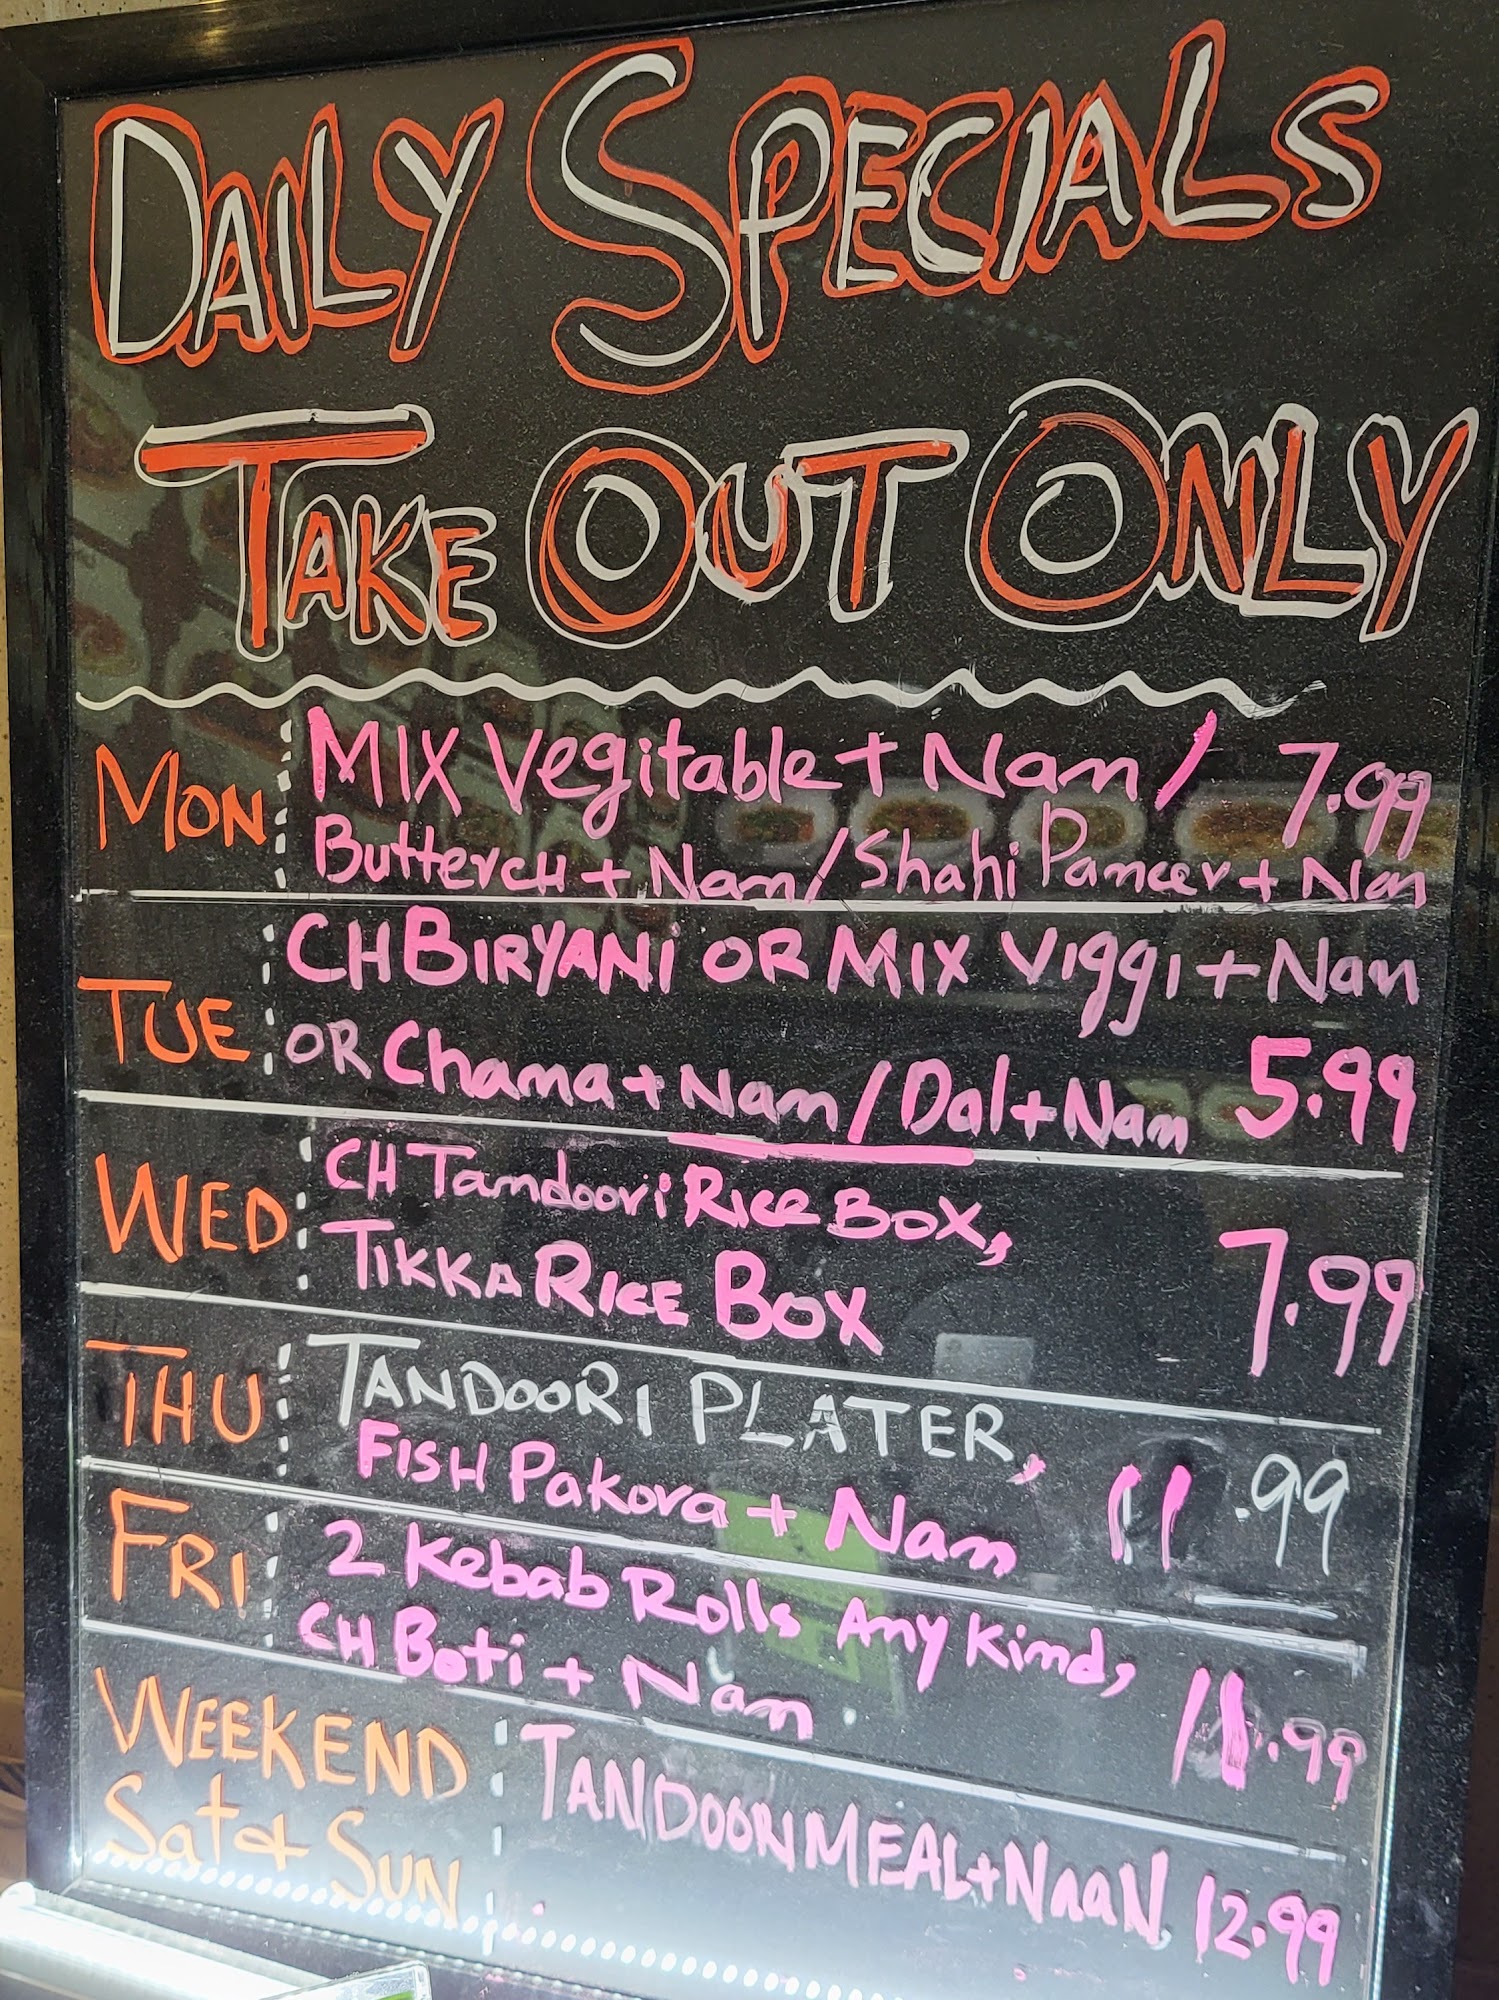 DAILY SPECIALS
TAKE OUT ONLY
MON MIX Vegitable + Nan / 7.99
Butter CH + Nan / Shahi Paneer + Nan
TUE CH BIRYANI OR MIX Viggi + Nan
OR Chana + Nan / Dal + Nan 5.99
WED CH Tandoori Rice Box,
TIKKA RICE BOX 7.99
THU TANDOORI PLATER,
FISH Pakora + Nan 11.99
FRI 2 Kebab Rolls Any Kind,
CH Boti + Nan. 11.99
WEEKEND TANDOORI MEAL + NAAN 12.99
Sat & SUN